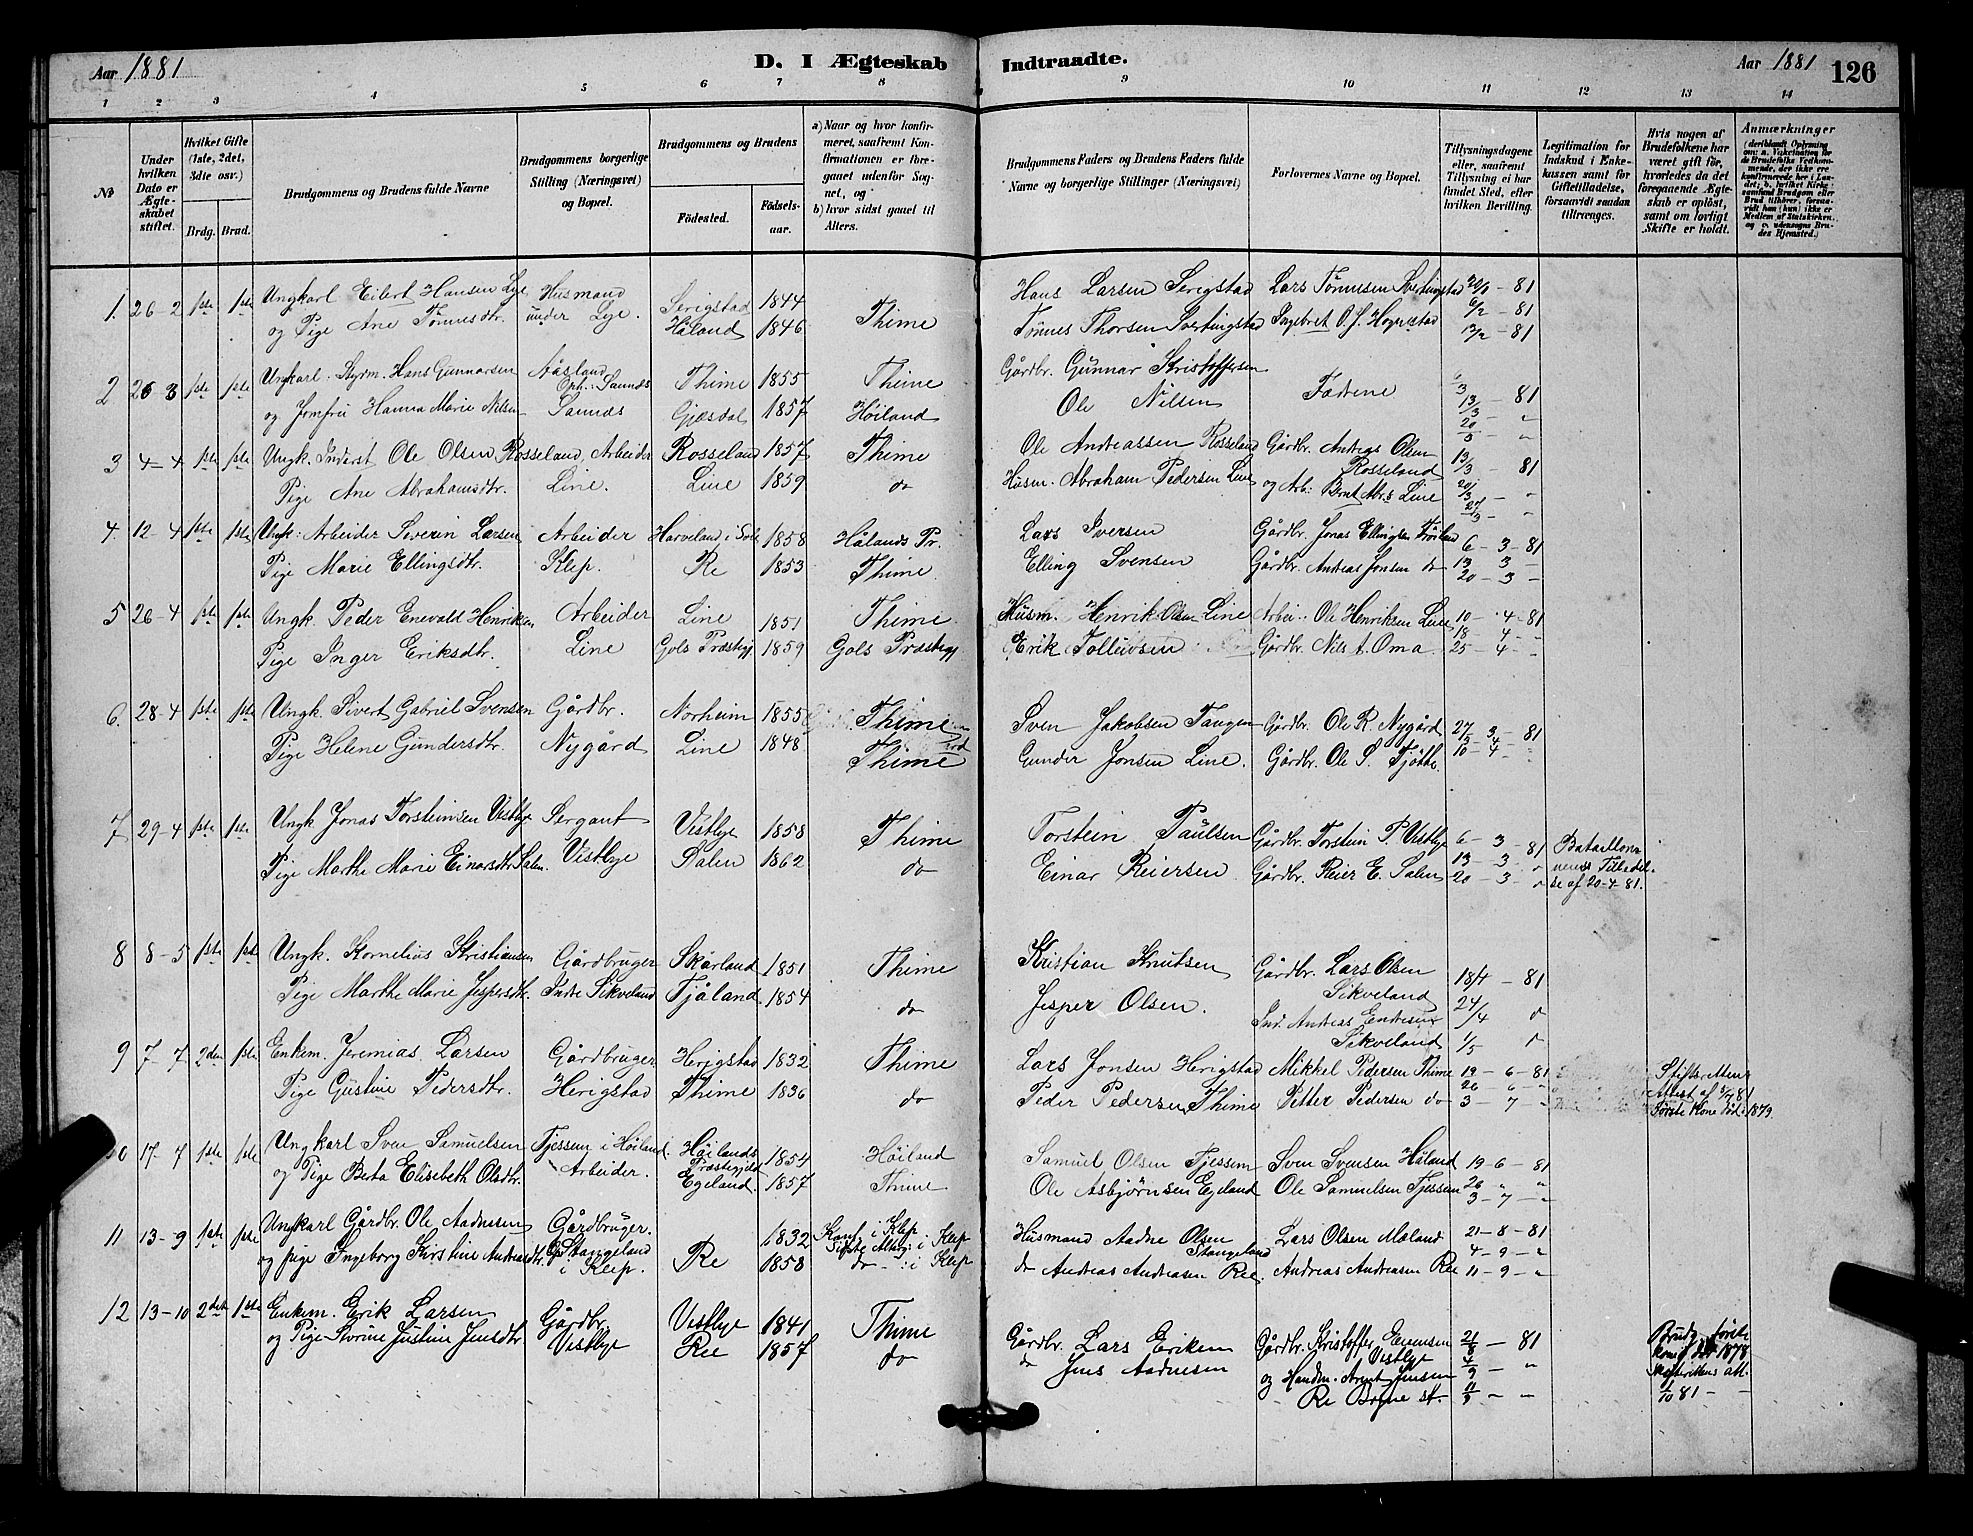 Aar 1881
D. I Ægteskab Indtraadte.
Aar 1881 126
1 2 3 4 5 6 7 8 9 10 11 12 13 14
No
Under hvilken Dato er Ægteskabet stiftet.
Hvilket Gifte (1ste, 2det, 3dte osv.)
Brdg. Brud.
Brudgommens og Brudens fulde Navne
Brudgommens borgerlige Stilling (Næringsvei) og Bopæl.
Brudgommens og Brudens
Födested.
Födselsaar.
a) Naar og hvor konfirmeret, saafremt Konfirmationen er foregaaet udenfor Sognet, og
b) hvor sidst gaaet til Alters.
Brudgommens Faders og Brudens Faders fulde Navne og borgerlige Stillinger (Næringsvei)
Forlovernes Navne og Bopæl.
Tillysningsdagene eller, saafremt Tillysning ei har fundet Sted, efter hvilken Bevilling.
Legitimation for Indskud i Enkekassen samt for Giftetilladelse, forsaavidt saadan tiltrænges.
Hvis nogen af Brudefolkene har været gift för, hvorledes da det foregaaende Ægteskab er oplöst, samt om lovligt Skifte er holdt.
Anmærkninger
1. 26-2 1ste 1ste Ungkarl Eilert Hansen Lye Husmand Serigstad 1844 Thime Hans Larsen Serigstad Lars Tönnesen Svertingstad 30/1 - 81
og Pige Ane Tönnesdtr. under Lye. Håland 1846 Tönnes Thorsen Svertingstad Ingebret O. S. Hognestad 6/2 - 81
13/2 - 81
2 26 3 1ste 1ste Ungkarl. Styrm. Hans Gunnarsen Aasland Oph: Sannes Thime 1855 Thime Gårdbr. Gunnar Kristoffersen Fædrene 6/3
og Jomfru Hanna Marie Nilsen Sannes Gjæsdal 1857 Höiland Ole Nilsen 13/3 - 81
20/3 - "
3 4-4 1ste 1ste Ungk. Inderst Ole Olsen Rosseland Arbeider Rosseland 1857 Thime Ole Andreassen Rosseland Gårdbr. Andreas Olsen Rosseland 13/3 - 81
Pige Ane Abrahamsdtr. Line. Line 1859 do Husm. Abraham Pedersen Line og Arb: Bernt Abr.s Line 20/3 - "
27/3 - "
4. 12-4 1ste 1ste Ungk: Arbeider Severin Larsen Arbeider Harveland i Sole 1858 Hålands Pr. Lars Iversen Gårdbr. Jonas Ellingsen Fröiland 6-3-81
Pige Marie Ellingsdtr. Klep. Re 1853 Thime. Elling Svensen Gårdbr. Andreas Jonsen do 13-3-
20-3-
5 26-4 1ste 1ste Ungk. Peder Enevald Henriksen Arbeider Line 1851 Thime Husm. Henrik Olsen Line Arbei: Ole Henriksen Line 10-4-81
Pige Inger Eriksdtr. Line Gols Præstegj. 1859 Gols Præstegj. Erik Tollevsen Gårdbr. Nils A. Oma. 18-4-"
25-4-"
6. 28-4 1ste 1ste Ungk. Sivert Gabriel Svensen Gårdbr. Norheim 1855 Thime Sven Jakobsen Tangen Gårdbr. Ole R. Nygård 27-3-81
Pige Helene Gundersdtr. Nygård Line 1848 Thime Gunder Jonsen Line. Gårdbr. Ole S. Tjötte. 10-4-"
7 29-4 1ste 1ste Ungk. Jonas Torsteinsen Vestlye Sergant Vestlye 1858 Thime Torstein Paulsen Gårdbr. Torstein P. Vestlye 6-3-81 Bataillonens Tilladelse af 20-4-81.
Pige Marthe Marie Einarsdtr. Salen. Vestlye Salen 1862 do Einar Reiersen Gårdbr. Reier E. Salen 13-3-"
20-3-"
8 8-5 1ste 1ste Ungk. Kornelius Kristiansen Gårdbruger Skårland 1851 Thime Kristian Knutsen Gårdbr. Lars Olsen Sikveland 18/4 - 81
Pige Marthe Marie Jespersdtr. Indre Sikveland Tjåland 1854 do Jesper Olsen. Ind. Andreas Endresen Sikveland 24/4 "
1/5 "
9 7-7 2den 1ste Enkem. Jeremias Larsen Gårdbruger Herigstad 1832 Thime Lars Jonsen Herigstad Mikkel Pedersen Thime 19-6-81 Skifterettens Attest af 5/7 81
Pige Gustine Pedersdtr. Herigstad Thime 1836 do Peder Pedersen Thime Petter Pedersen do 26-6-" Første Kone död 1879.
3-7-"
10 17-7 1ste 1ste Ungkarl Sven Samuelsen Tjessem i Höiland. Höilands Præstegjeld 1854 Höiland Samuel Olsen Tjessem Sven Svensen Håland 19-6-81
og Pige Berta Elisabeth Olsdtr. Arbeider. Egeland. 1857 Thime Ole Asbjørnsen Egeland Ole Samuelsen Tjessem 26 " "
3-7-"
11 13-9 1ste 1ste Ungkarl Gårdbr. Ole Aadnesen Gårdbruger. 1832 Konf. i Klep Sidste Altarg. i Klep Husmand Aadne Olsen Stangeland Lars Olsen Mæland 21-8-81
og pige Ingeborg Kirstine Andreasdtr. Stangeland i Klep. Re 1858 do i Klep do Andreas Andreasen Ree. Andreas Andreasen Ree 4-9-"
11-9-"
12 13-10 2det 1ste Enkem. Erik Larsen Gårdbr. Vestlye 1841 Thime Gårdbr. Lars Eriksen Gårdbr. Kristoffer Enersen Vestlye 21/8 - 81 Brudg. förste kone död 1878
og Pige Jensdtr. Vestlye Ree 1857 do do Jens Aadnesen og Handm. Arent Jensen 4/9 - " Skifterettens att.
Re Bryne st. 11/9 - " /10 81 -